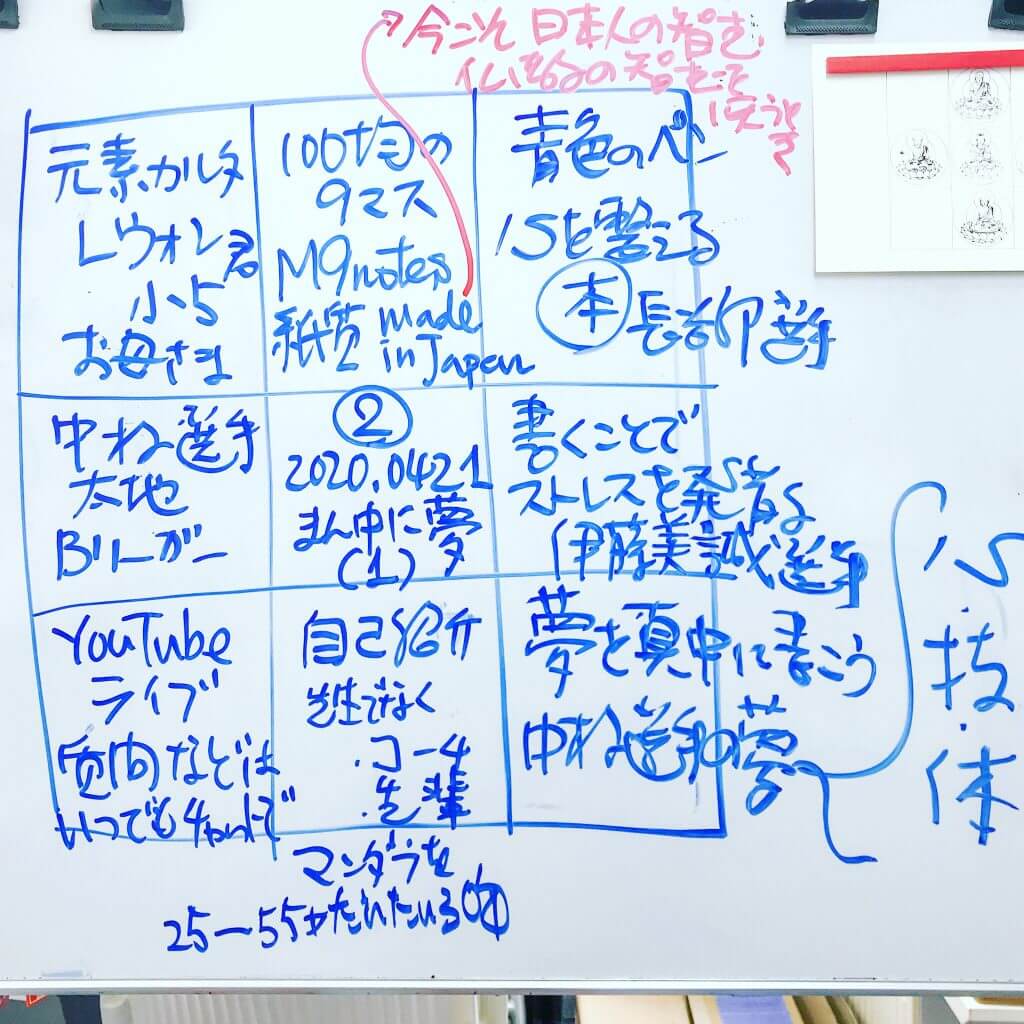 今こそ日本人の智を
仏教の智をを
使う
元素カルタ
レウォン君
小5
お母さま
100均の
9マス
M9notes
紙質 made
in Japan
青色のペン
心を整える
本 長谷部選手
中ね選手
太地
Bリーガー
②
2020.0421
まん中に夢
(1)
書くことで
ストレスを発音する
伊藤美誠選手
YouTube
ライブ
質問などは
いつでもチャットで
自己紹介
先生でなく
・コーチ
・先輩
夢を真中に書こう
中ね選手の夢
心・技・体
マンダラを
25-55